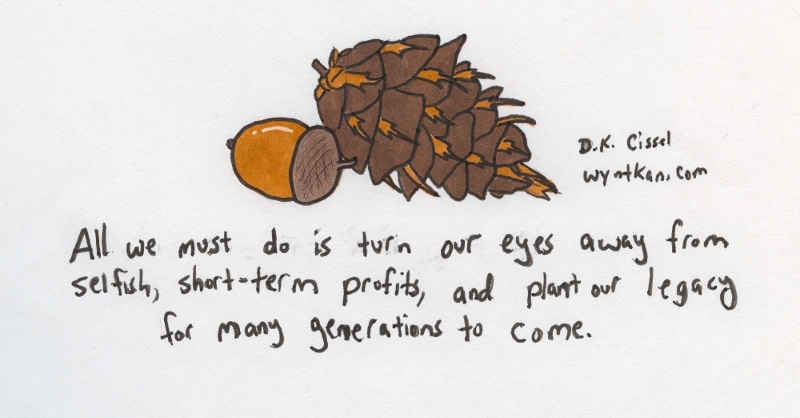 D.K. Cissel
wyntkan.com
All we must do is turn our eyes away from
selfish, short-term profits, and plant our legacy
for many generations to come.